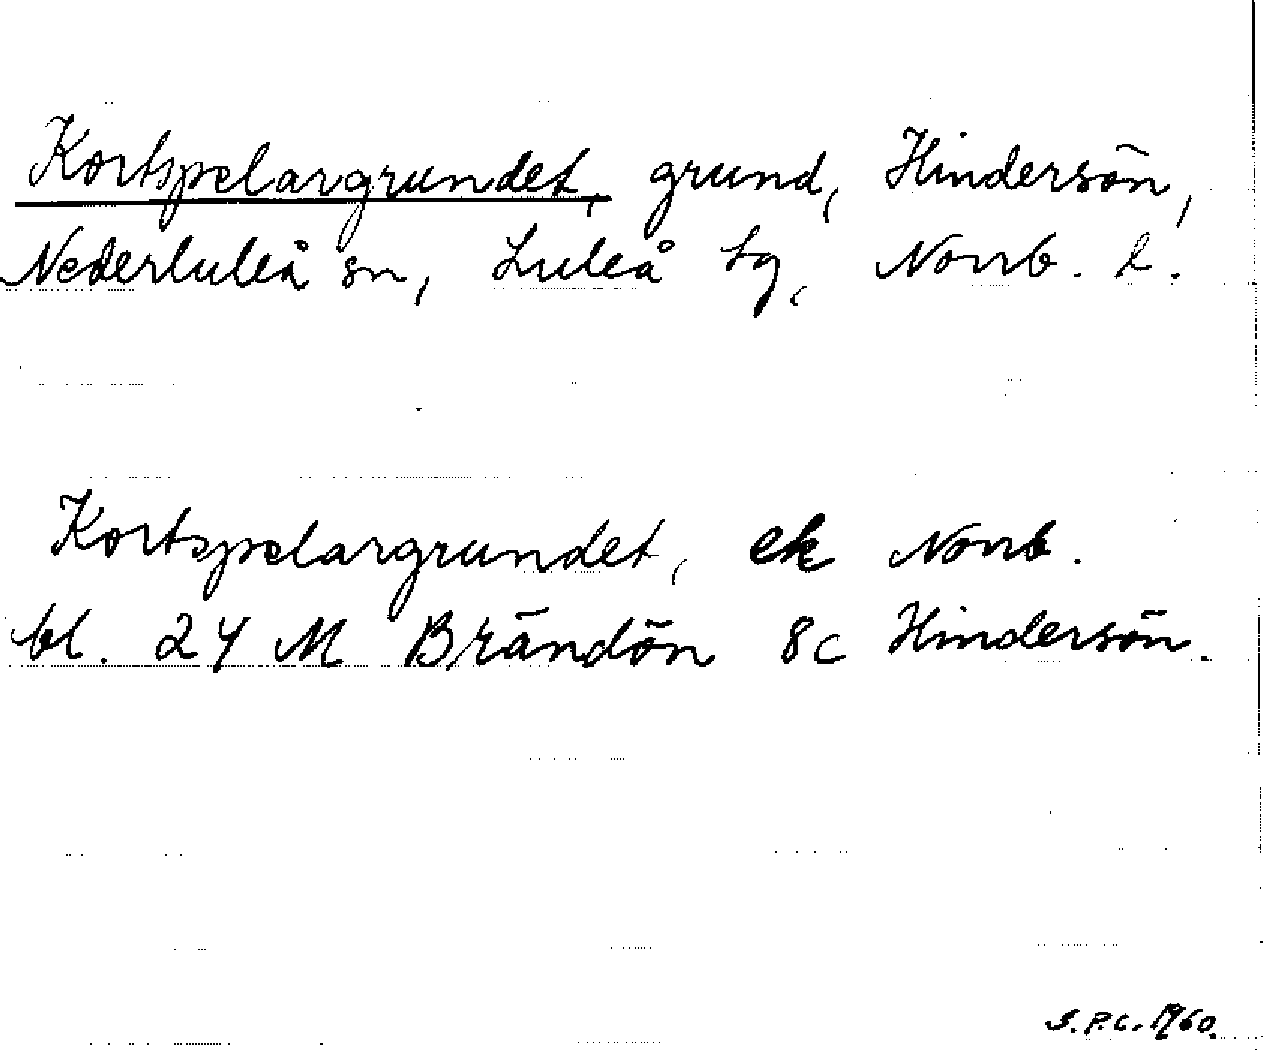 Kortspelargrundet, grund, Hindersön,
Nederluleå sn, Luleå tg, Norrb. l.
Kortspelargrundet, ek Norrb.
bl. 24 M Brändön 8c Hindersön.
S.P.C. 1960.